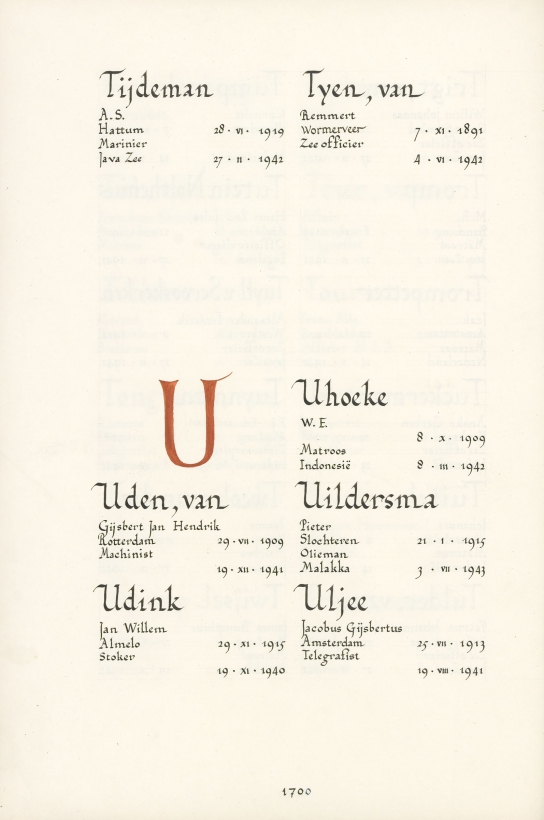 Tijdeman
A.S.
Hattum 28 · VI · 1919
Marinier
Java Zee 27 · II · 1942
Tyen, van
Remmert
Wormerveer 7 · XI · 1891
Zee officier
4 · VI · 1942
U
Uden, van
Gijsbert Jan Hendrik
Rotterdam 29 · VII · 1909
Machinist
19 · XII · 1941
Udink
Jan Willem
Almelo 29 · XI · 1915
Stoker
19 · XI · 1940
Uhoeke
W. F.
8 · X · 1909
Matroos
Indonesië 8 · III · 1942
Uildersma
Pieter
Slochteren 21 · I · 1915
Olieman
Malakka 3 · VII · 1943
Uljee
Jacobus Gijsbertus
Amsterdam 25 · VII · 1913
Telegrafist
19 · VIII · 1941
1700